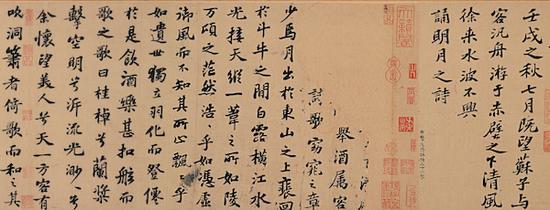 壬戌之秋七月既望蘇子與
客泛舟游于赤壁之下清風
徐來水波不興
誦明月之詩
舉酒属客
歌窈窕之章
少焉月出於東山之上裴回
於斗牛之間白露橫江水
光接天縱一葦之所如陵
万頃之茫然浩乎如憑虛
御風而不知其所止飄〻乎
如遺世獨立羽化而登僊
於是飲酒樂甚扣舷而
歌之歌曰桂棹兮蘭槳
擊空明兮泝流光渺〻兮
余懷望美人兮天一方客有
吹洞簫者倚歌而和之其